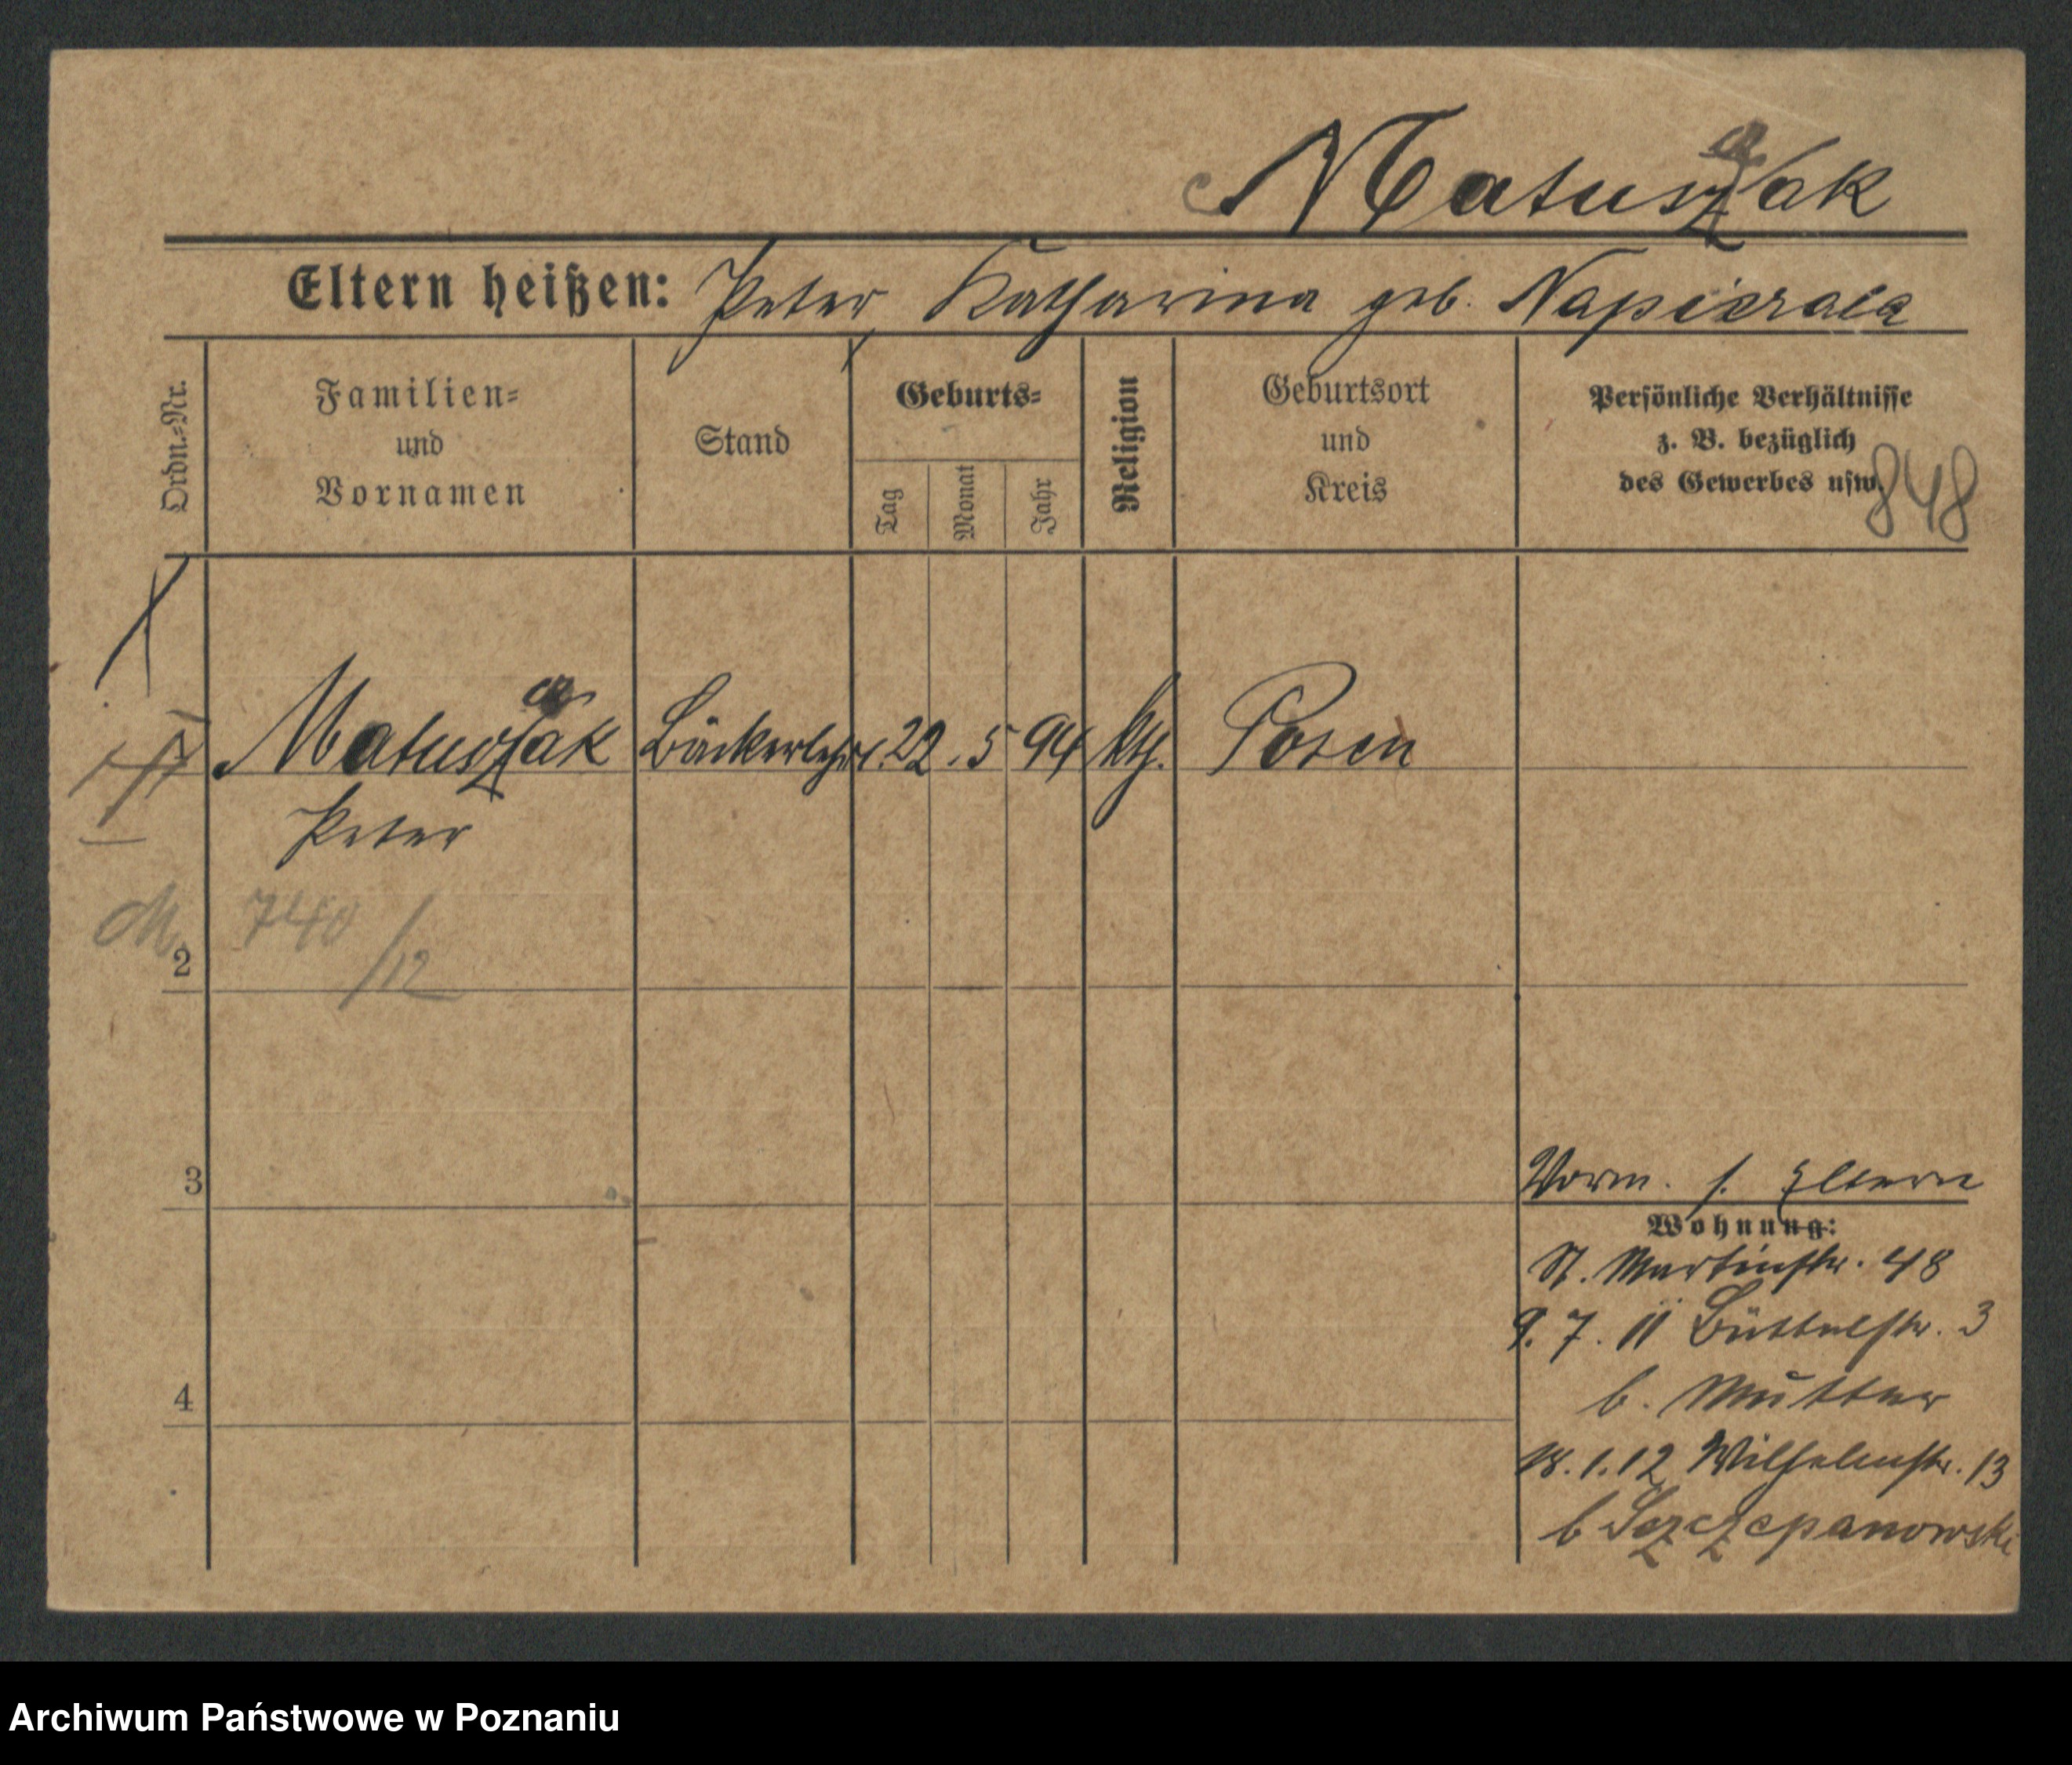 Matuszak
Eltern heißen: Peter, Katharina geb. Napierala
Ordn.-Nr.
Familien-
und
Vornamen
Stand
Geburts-
Tag
Monat
Jahr
Religion
Geburtsort
und
Kreis
Persönliche Verhältnisse
z. B. bezüglich
des Gewerbes usw.
848
Matuszak Bäckerlehrl. 22. 5 94 kth. Posen
Peter
740
/12
2
3
4
Vorm. s. Eltern
Wohnung:
St. Martinstr. 48
9. 7. 11 Büttelstr. 3
b. Mutter
18. 1. 12 Wilhelmstr. 13
b Szczepanowski
Archiwum Państwowe w Poznaniu